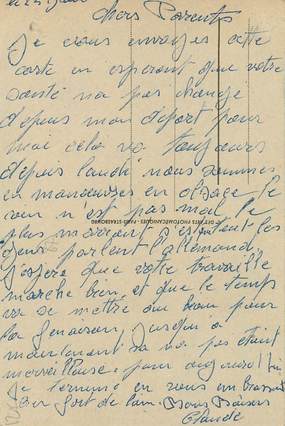 chers Parents
Je vous envoyes cette
carte en esperant que votre
santé na pas changé
depuis mon départ pour
moi cela va toujours
depuis lundi nous sommes
en manœuvres en Alsace le
coin n'est pas mal le
plus marrant s'est tout les
gens parlent l'allemand.
J'espère que votre travaille
marche bien et que le temps
va se mettre au beau pour
la jusqu'a
maintenant sa va pas étant
merveilleuse pour aujourd'hui
Je termine en vous embrassant
bien fort de loin. Bons Baisers
Claude